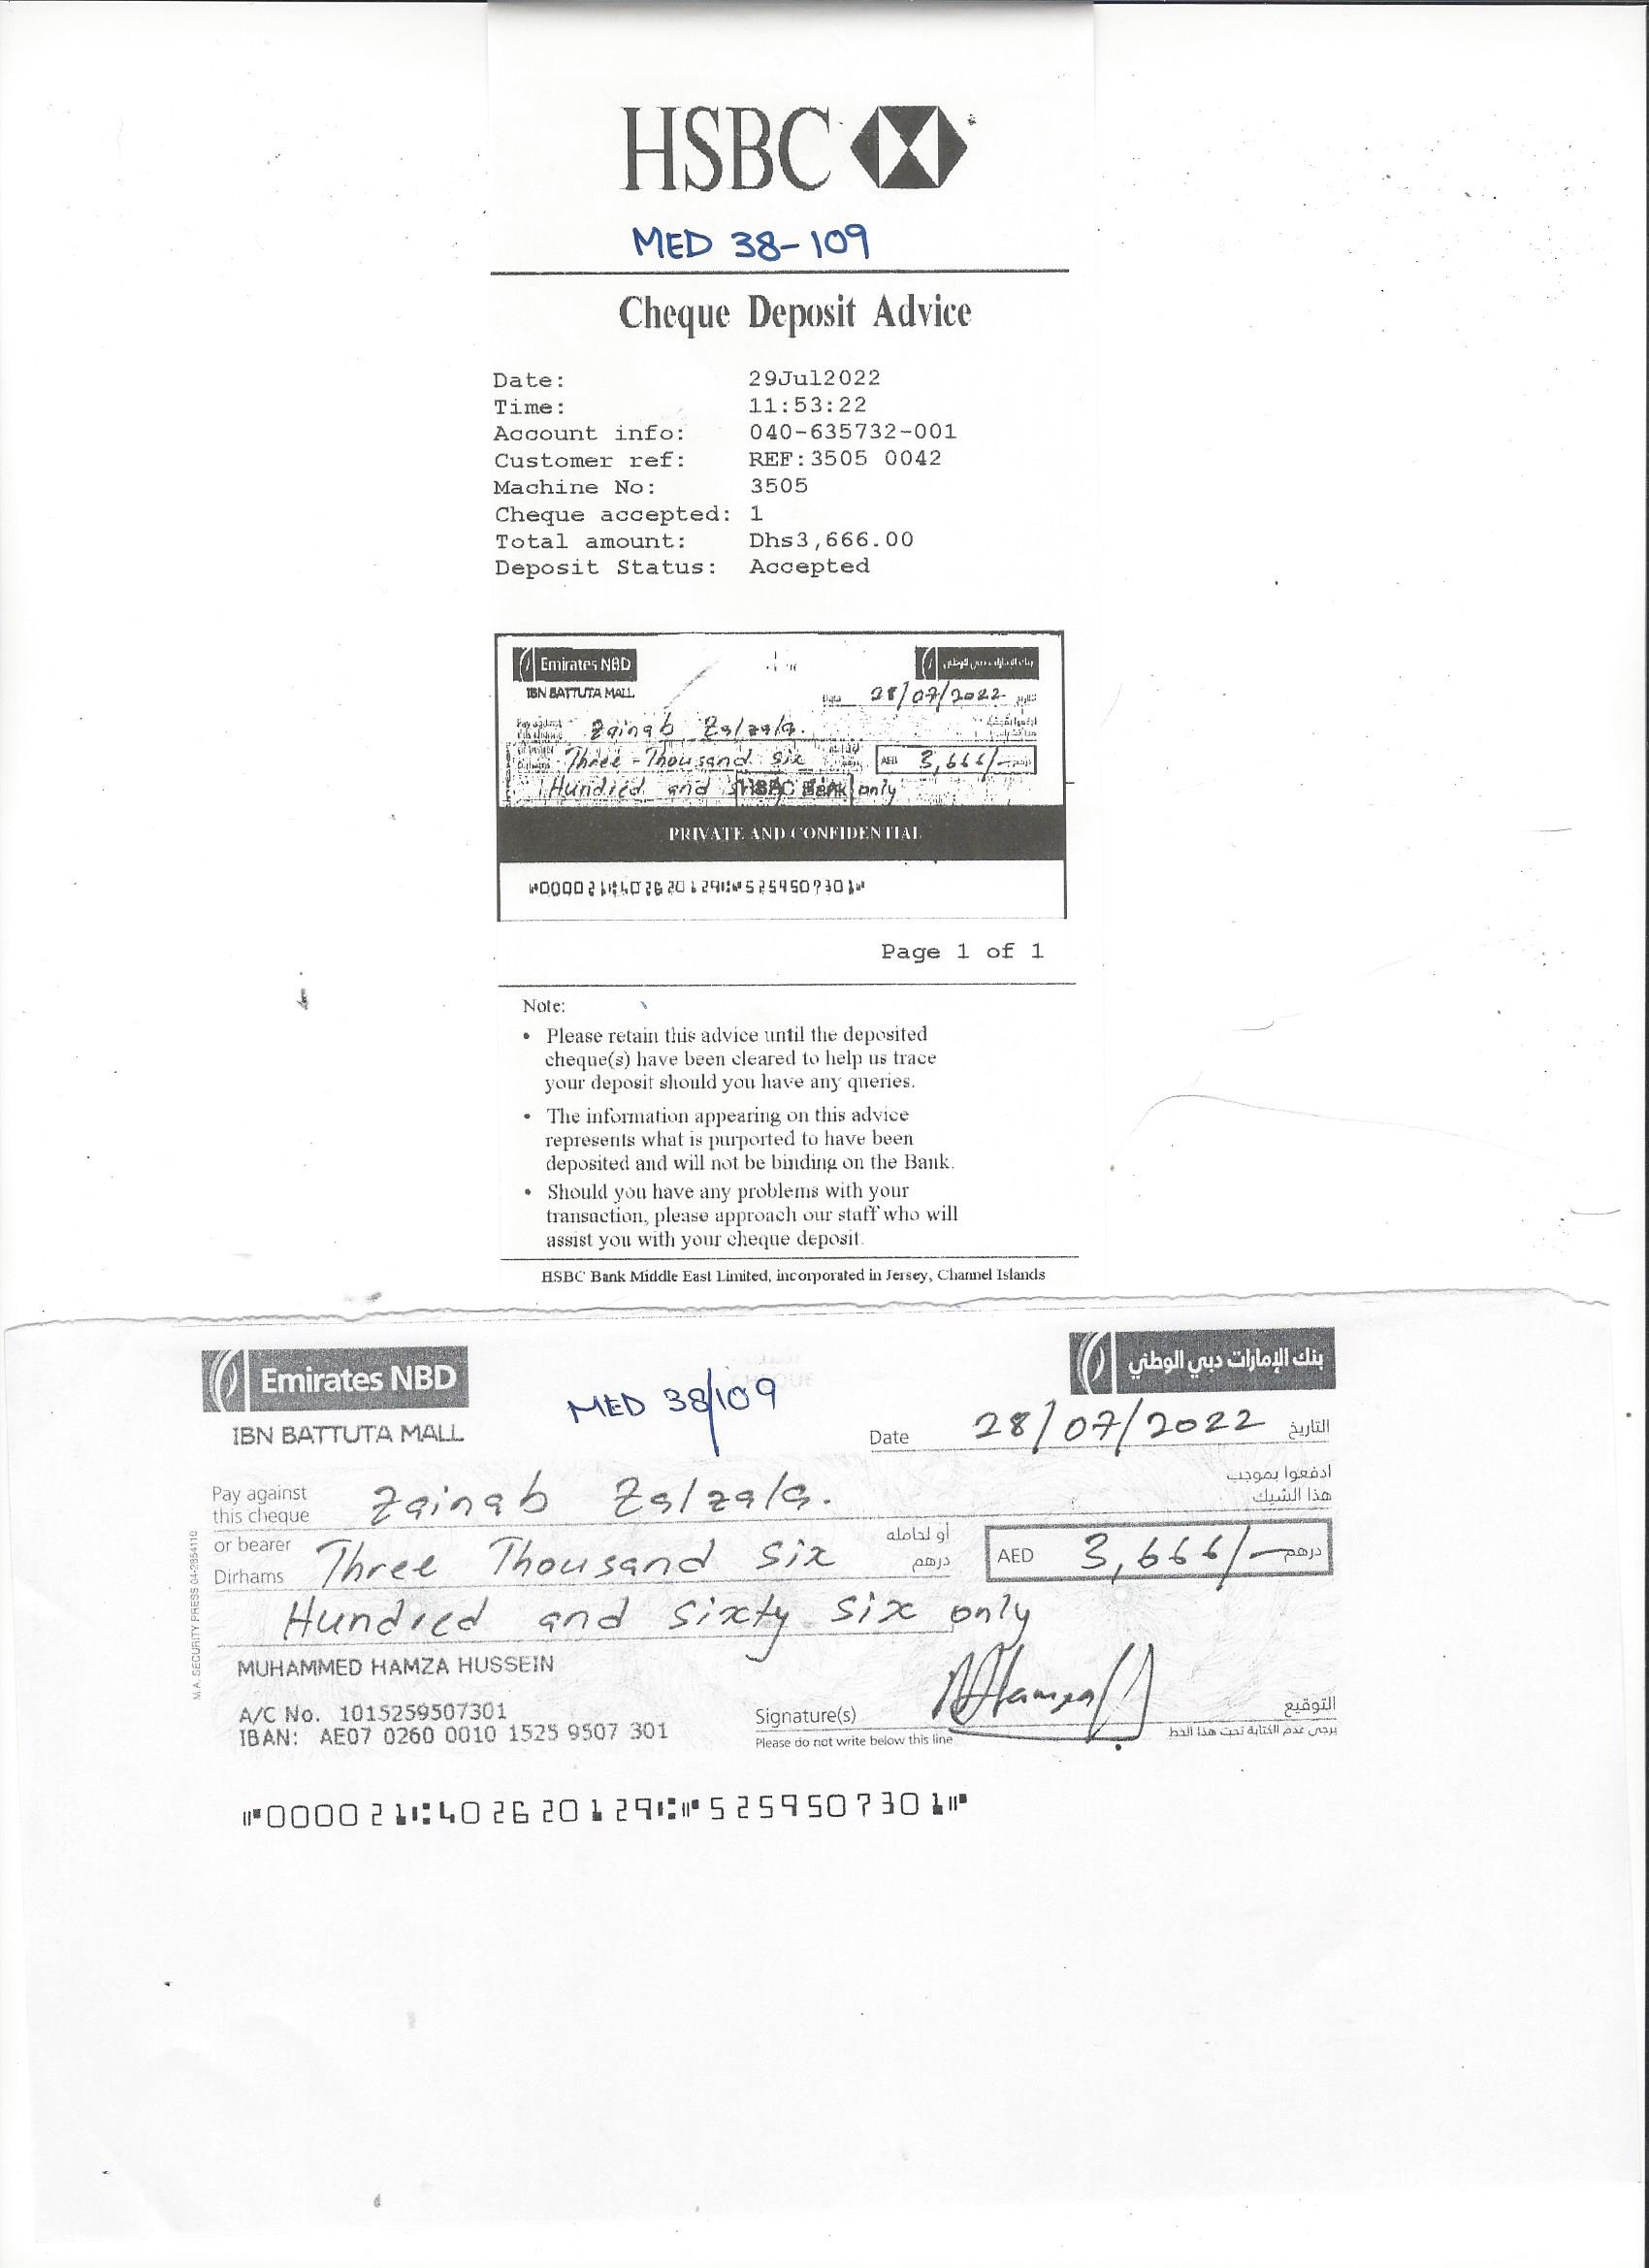 HSBC
MED 38-109
Cheque Deposit Advice
Date: 29Jul2022
Time: 11:53:22
Account info: 040-635732-001
Customer ref: REF:3505 0042
Machine No: 3505
Cheque accepted: 1
Total amount: Dhs3,666.00
Deposit Status: Accepted
Emirates NBD
IBN BATTUTA MALL
Date 28/07/2022
Zainab Zalzala.
Three - Thousand Six
AED 3,666/-
Hundred and HSBC Bank only
PRIVATE AND CONFIDENTIAL
⑈000021⑆402620129⑆⑈5259507301⑈
Page 1 of 1
Note:
• Please retain this advice until the deposited
cheque(s) have been cleared to help us trace
your deposit should you have any queries.
• The information appearing on this advice
represents what is purported to have been
deposited and will not be binding on the Bank.
• Should you have any problems with your
transaction, please approach our staff who will
assist you with your cheque deposit.
HSBC Bank Middle East Limited, incorporated in Jersey, Channel Islands
Emirates NBD بنك الإمارات دبي الوطني
MED 38/109
IBN BATTUTA MALL
Date 28/07/2022 التاريخ
Pay against ادفعوا بموجب
this cheque Zainab Zalzala. هذا الشيك
or bearer أو لحامله
Dirhams Three Thousand Six درهم AED 3,666/- درهم
Hundred and sixty six only
MUHAMMED HAMZA HUSSEIN
A/C No. 1015259507301
IBAN: AE07 0260 0010 1525 9507 301
Signature(s) التوقيع
Please do not write below this line يرجى عدم الكتابة تحت هذا الخط
M.A. SECURITY PRESS 04-2854110
⑈000021⑆402620129⑆⑈5259507301⑈